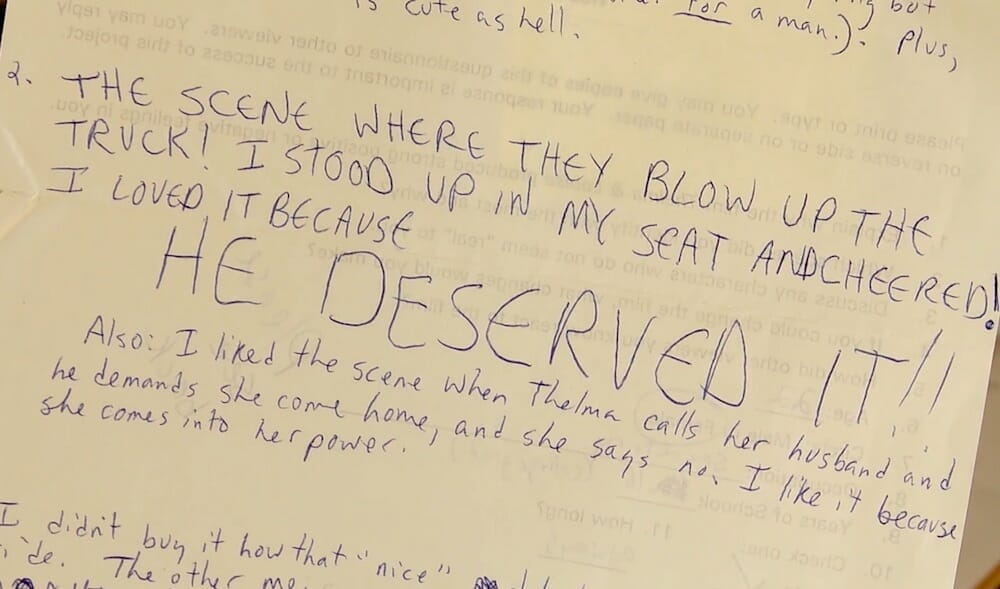 for a man.). plus,
is cute as hell.
2. THE SCENE WHERE THEY BLOW UP THE
TRUCK! I STOOD UP IN MY SEAT AND CHEERED!
I LOVED IT BECAUSE
HE DESERVED IT!!
Also: I liked the scene when Thelma calls her husband and
he demands she come home, and she says no. I like it because
she comes into her power.
I didn't buy it how that "nice"
The other
Please print or type. You may give copies of this questionnaire to other viewers. You may reply
on reverse side or on separate paper. Your response is important to the success of this project.
3. Discuss any characters who do not seem "real" to you.
If you could change the film, what changes would you make?
How did other viewers you know react to the film?
6. Age:
8. Occupation
9. Years of School
10. Check one:
11. How long?